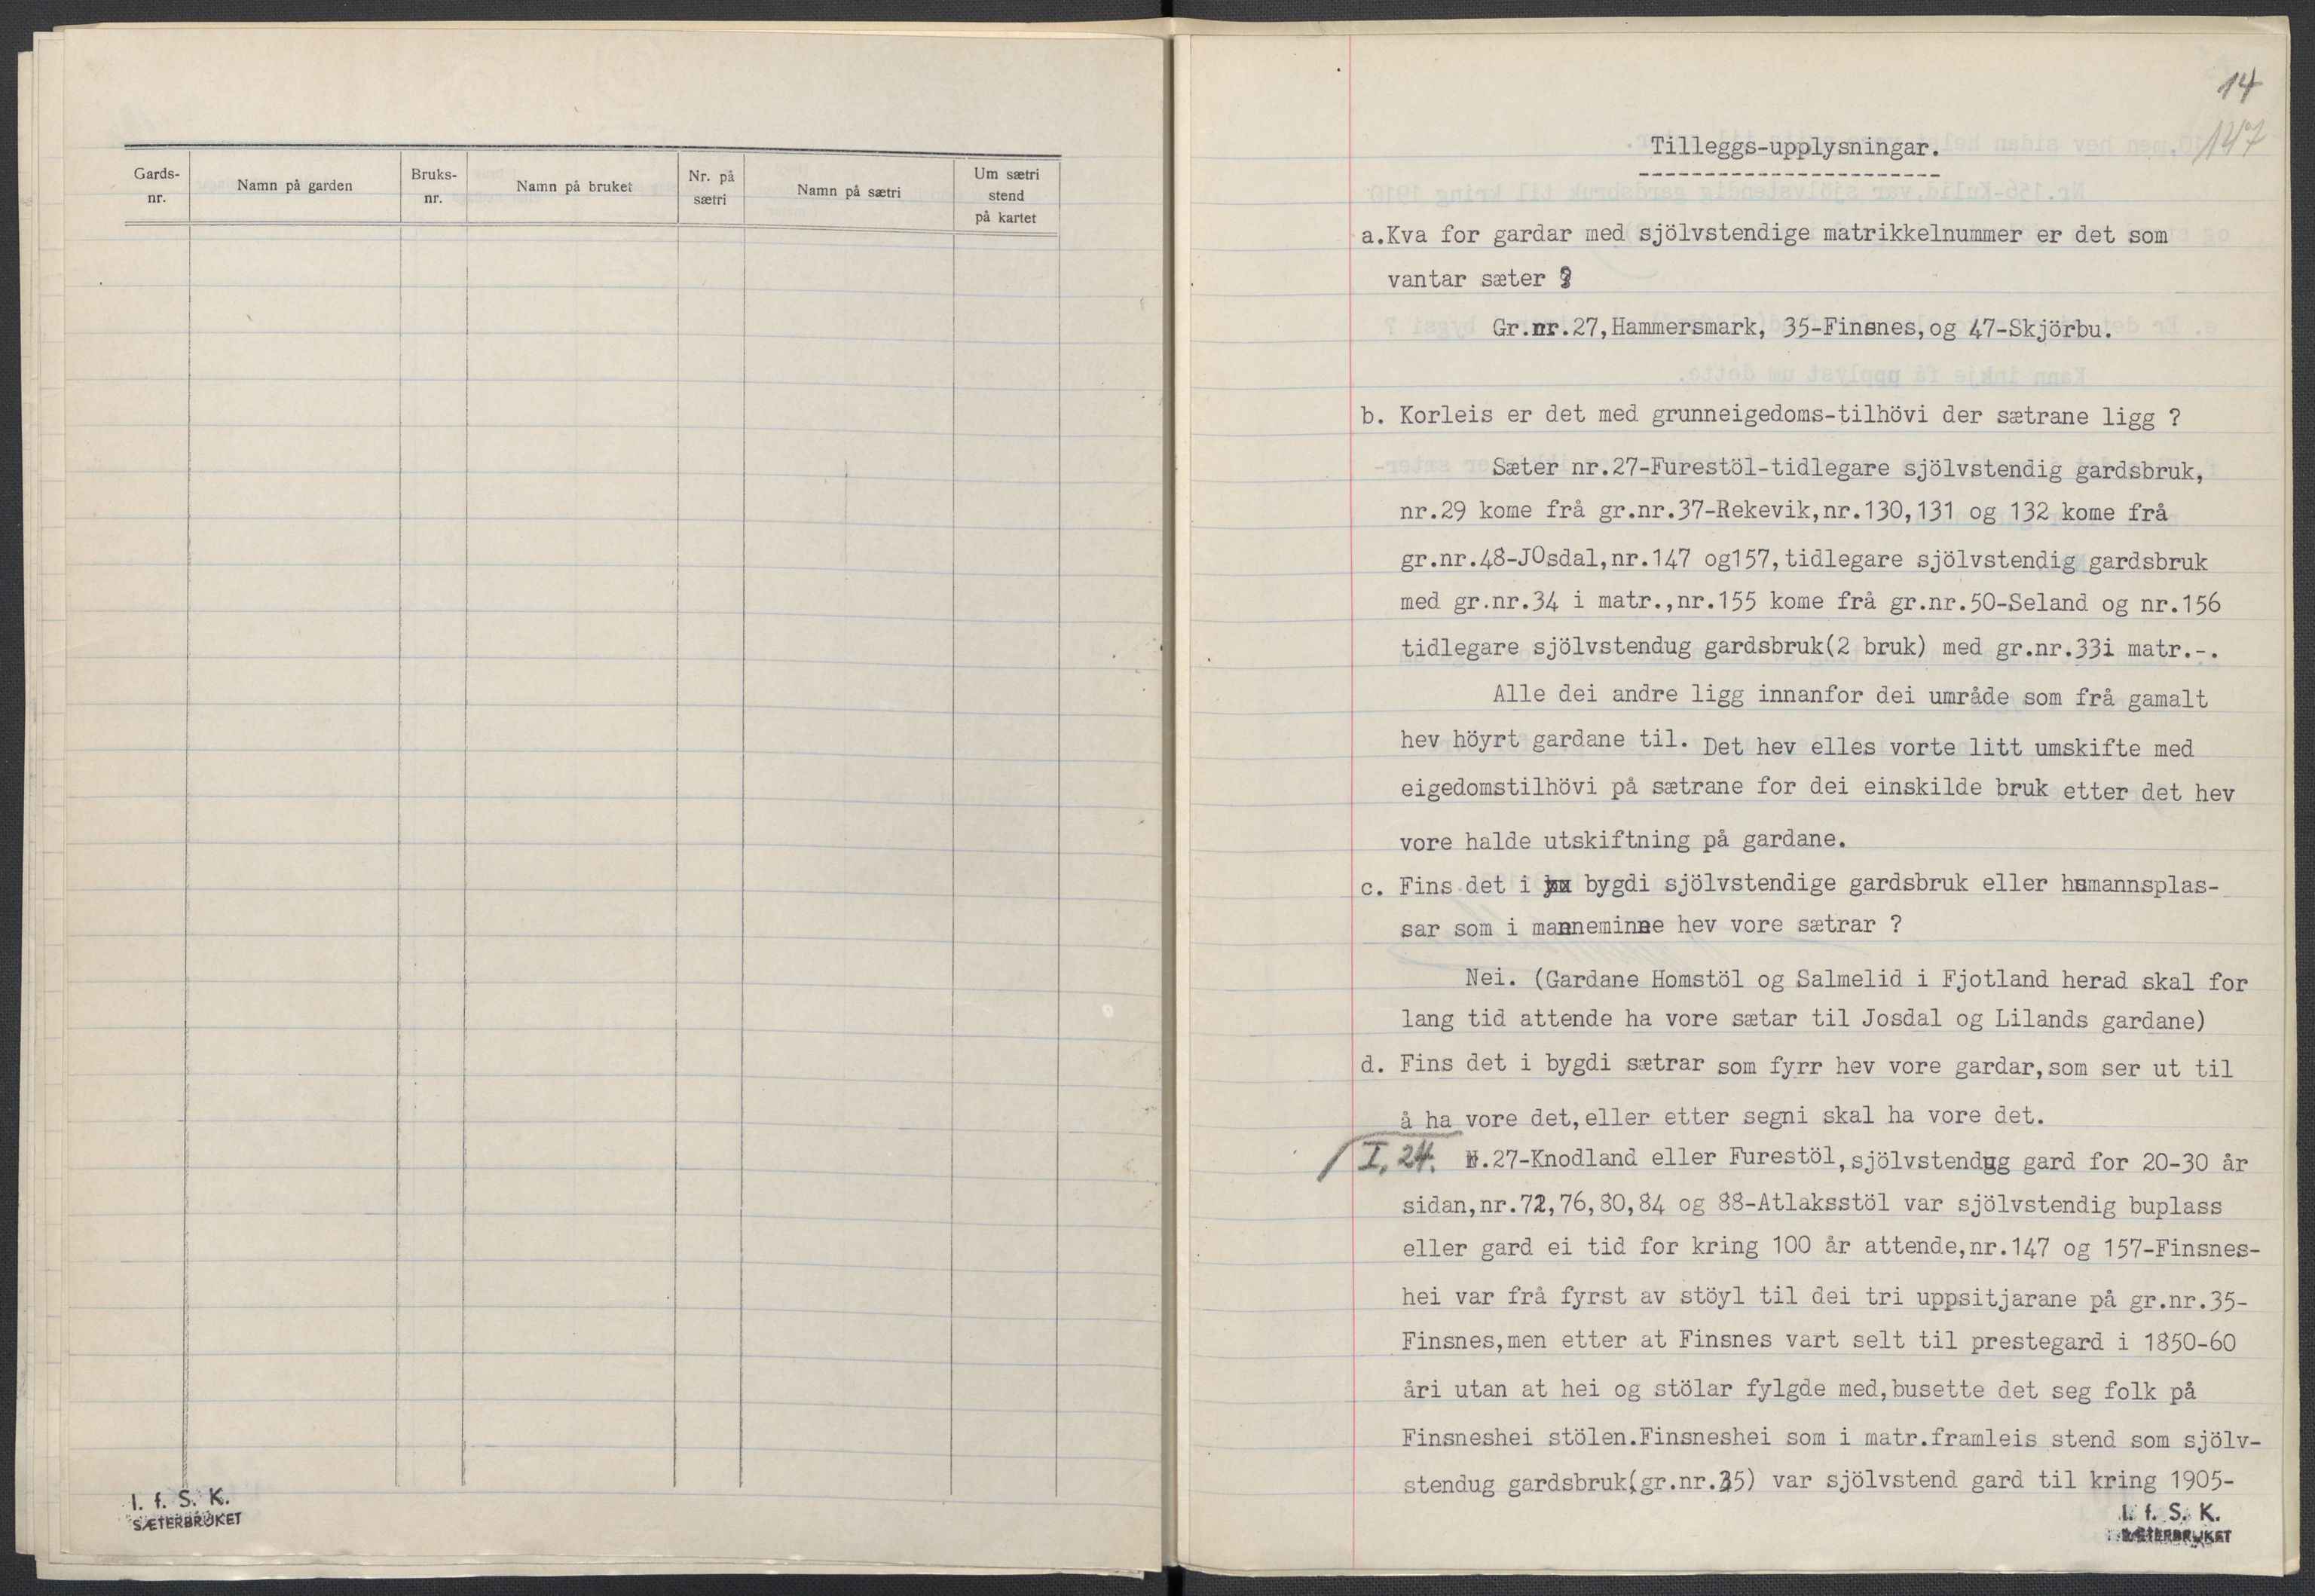 Gards-
nr.
Namn på garden
Bruks-
nr.
Namn på bruket
Nr. på
sætri
Namn på sætri
Um sætri
stend
på kartet
I. f. S. K.
SÆTERBRUKET
14
147
Tilleggs-upplysningar.
a.Kva for gardar med sjölvstendige matrikkelnummer er det som
vantar sæter ?
Gr.nr.27,Hammersmark, 35-Finsnes,og 47-Skjörbu.
b. Korleis er det med grunneigedoms-tilhövi der sætrane ligg ?
Sæter nr.27-Furestöl-tidlegare sjölvstendig gardsbruk,
nr.29 kome frå gr.nr.37-Rekevik,nr.130,131 og 132 kome frå
gr.nr.48-JOsdal,nr.147 og157,tidlegare sjölvstendig gardsbruk
med gr.nr.34 i matr.,nr.155 kome frå gr.nr.50-Seland og nr.156
tidlegare sjölvstendug gardsbruk(2 bruk) med gr.nr.33i matr.-.
Alle dei andre ligg innanfor dei område som frå gamalt
hev höyrt gardane til. Det hev elles vorte litt umskifte med
eigedomstilhövi på sætrane for dei einskilde bruk etter det hev
vore halde utskiftning på gardane.
c. Fins det i bygdi sjölvstendige gardsbruk eller husmannsplas-
sar som i manneminne hev vore sætrar ?
Nei. (Gardane Homstöl og Salmelid i Fjotland herad skal for
lang tid attende ha vore sætar til Josdal og Lilands gardane)
d. Fins det i bygdi sætrar som fyrr hev vore gardar,som ser ut til
å ha vore det,eller etter segni skal ha vore det.
I, 24. N.27-Knodland eller Furestöl,sjölvstendug gard for 20-30 år
sidan,nr.72,76,80,84 og 88-Atlaksstöl var sjölvstendig buplass
eller gard ei tid for kring 100 år attende,nr.147 og 157-Finsnes-
hei var frå fyrst av stöyl til dei tri uppsitjarane på gr.nr.35-
Finsnes,men etter at Finsnes vart selt til prestegard i 1850-60
åri utan at hei og stölar fylgde med,busette det seg folk på
Finsneshei stölen.Finsneshei som i matr.framleis stend som sjölv-
stendug gardsbruk(gr.nr.35) var sjölvstend gard til kring 1905-
I. f. S. K.
SÆTERBRUKET